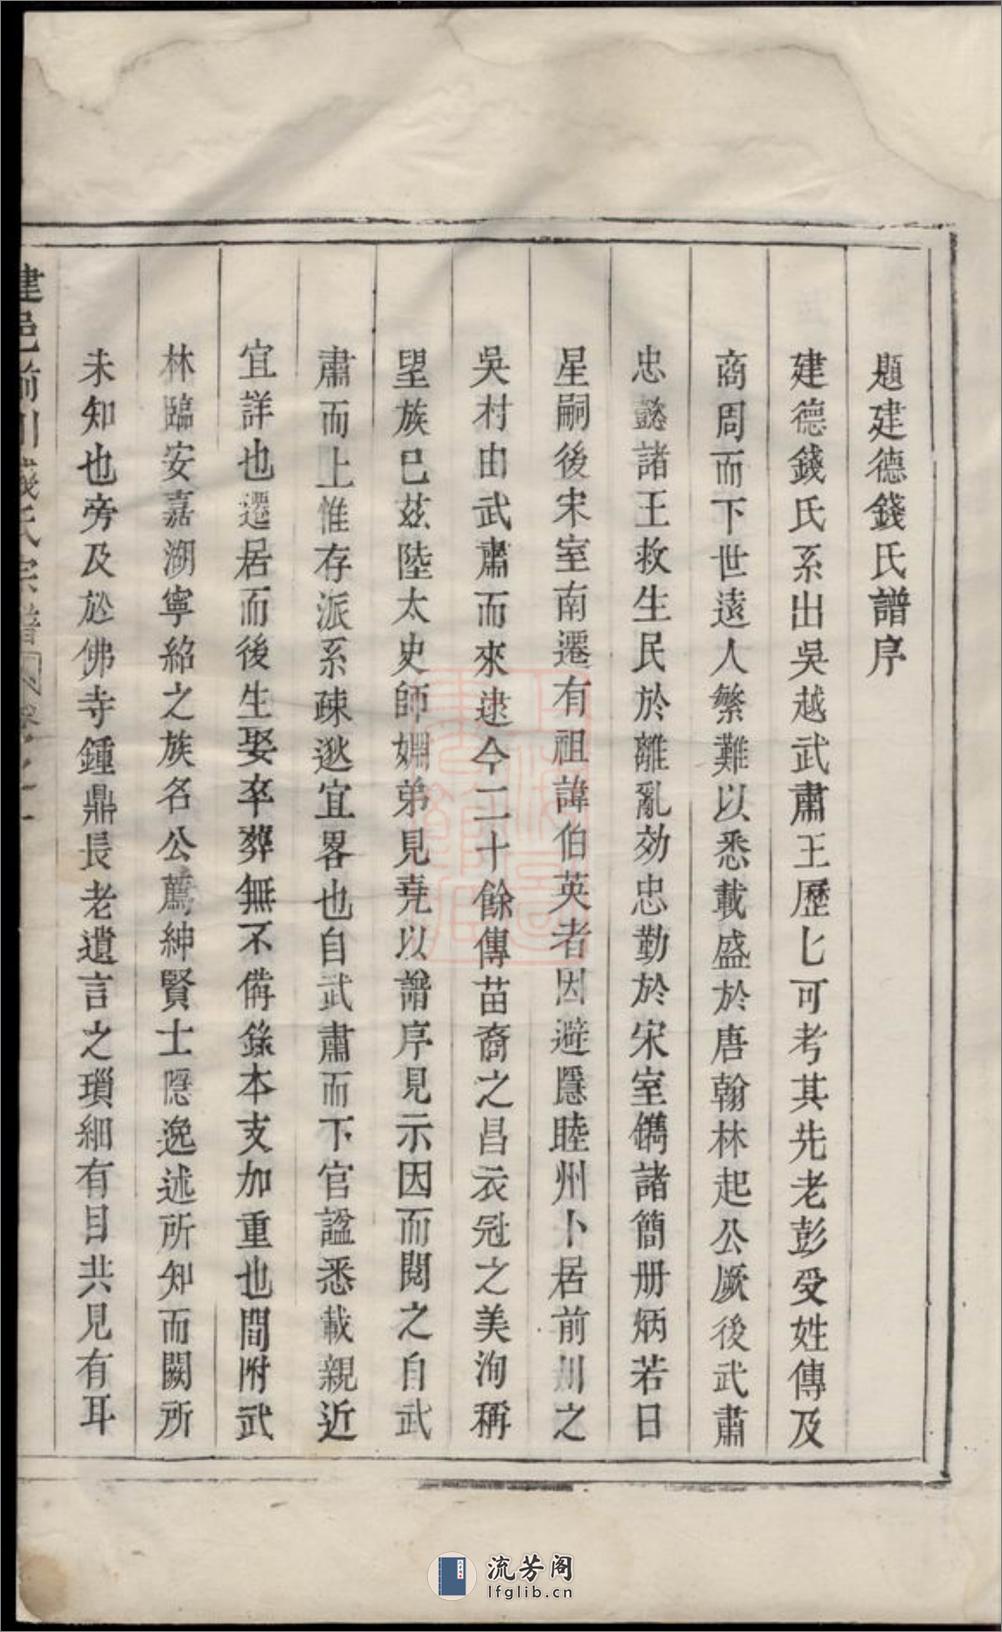 題建德錢氏譜序
建德錢氏系出吳越武肅王歷匕可考其先老彭受姓傳及
商周而下世遠人繁難以悉載盛於唐翰林起公厥後武肅
忠懿諸王救生民於離亂効忠勤於宋室鐫諸簡册炳若日
星嗣後宋室南遷有祖諱伯英者因避隱睦州卜居前川之
吳村由武肅而來逮今二十餘傳苗裔之昌衣冠之美洵稱
望族巳茲陸太史師婣弟見堯以譜序見示因而閱之自武
肅而上惟存派系疎逖宜畧也自武肅而下官諡悉載親近
宜詳也遷居而後生娶卒葬無不偹錄本支加重也間附武
林臨安嘉湖寧紹之族名公薦紳賢士隱逸述所知而闕所
未知也旁及於佛寺鍾鼎長老遺言之瑣細有目共見有耳
建邑前川錢氏宗譜 卷之一
流芳阁
lfglib.cn